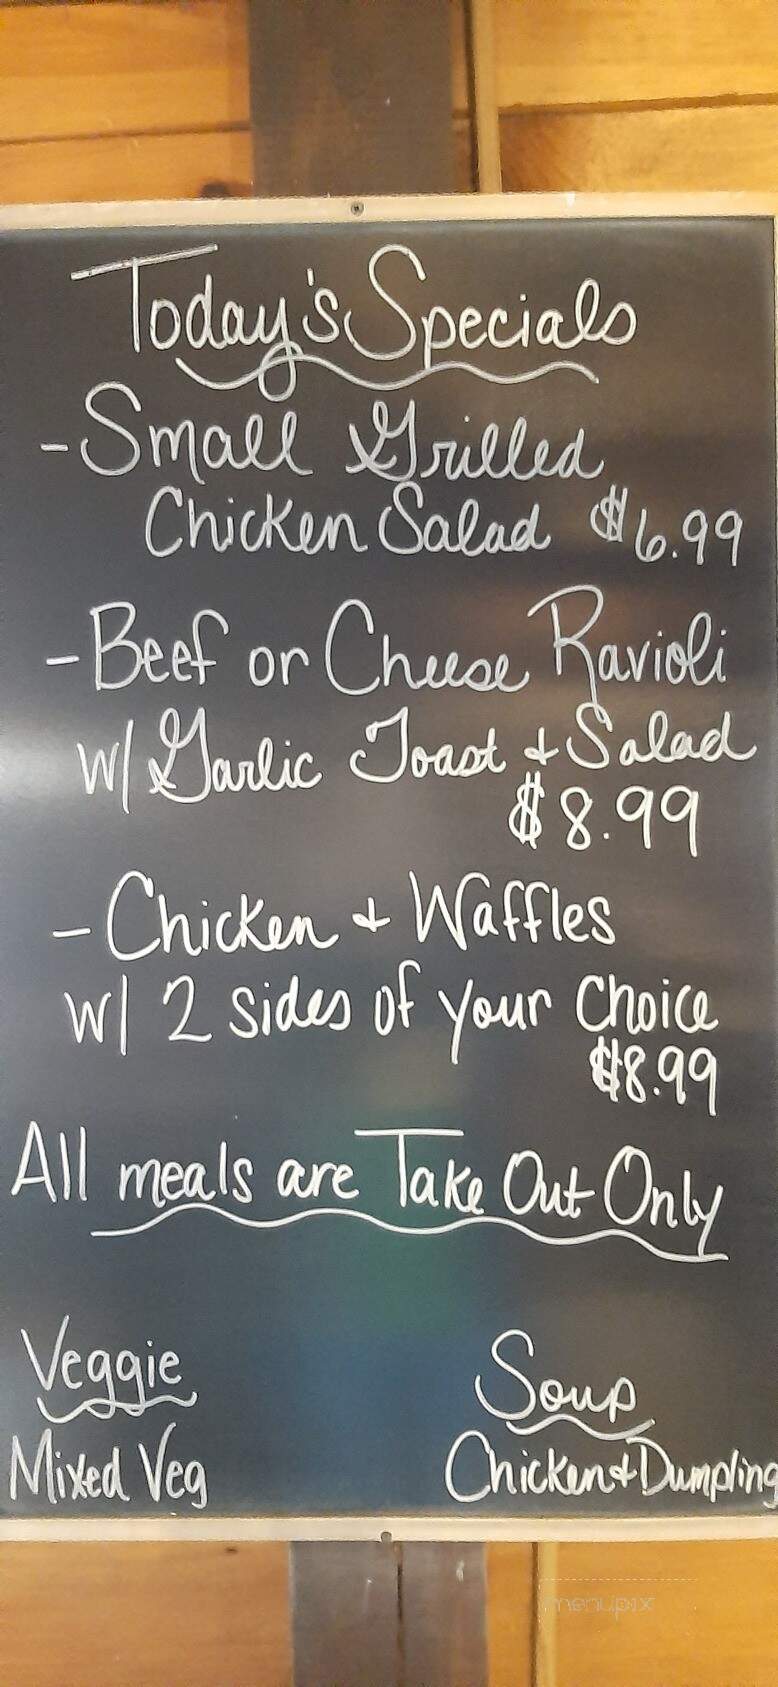 Today's Specials
- Small Grilled
Chicken Salad $6.99
- Beef or Cheese Ravioli
w/ Garlic Toast + Salad
$8.99
- Chicken + Waffles
w/ 2 sides of your Choice
$8.99
All meals are Take Out Only
Veggie Soup
Mixed Veg Chicken + Dumpling
menupix